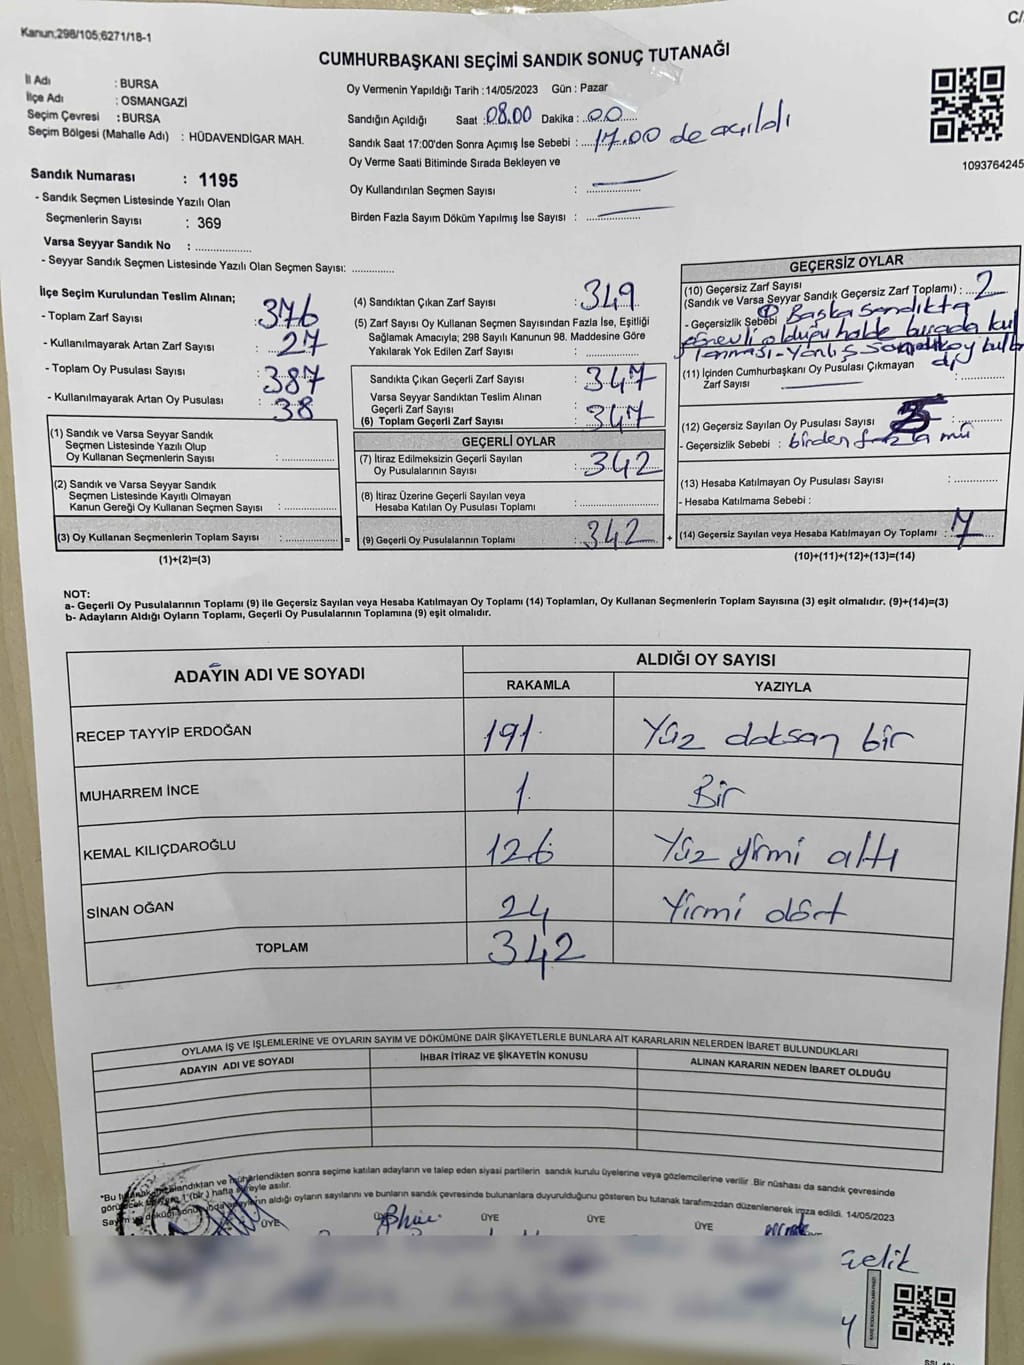 Kanun;298/105;6271/18-1
C/
CUMHURBAŞKANI SEÇİMİ SANDIK SONUÇ TUTANAĞI
İl Adı : BURSA
İlçe Adı : OSMANGAZİ
Seçim Çevresi : BURSA
Seçim Bölgesi (Mahalle Adı) : HÜDAVENDİGAR MAH.
Oy Vermenin Yapıldığı Tarih :14/05/2023 Gün : Pazar
Sandığın Açıldığı Saat :08.00 Dakika :..00......
Sandık Saat 17:00'den Sonra Açımış İse Sebebi :....17.00 de açıldı
Oy Verme Saati Bitiminde Sırada Bekleyen ve
Oy Kullandırılan Seçmen Sayısı : ................
Birden Fazla Sayım Döküm Yapılmış İse Sayısı : ................
1093764245
Sandık Numarası : 1195
- Sandık Seçmen Listesinde Yazılı Olan
Seçmenlerin Sayısı : 369
Varsa Seyyar Sandık No : ................
- Seyyar Sandık Seçmen Listesinde Yazılı Olan Seçmen Sayısı: ............
İlçe Seçim Kurulundan Teslim Alınan;
- Toplam Zarf Sayısı : 376
- Kullanılmayarak Artan Zarf Sayısı : 27
- Toplam Oy Pusulası Sayısı : 387
- Kullanılmayarak Artan Oy Pusulası : 38
(1) Sandık ve Varsa Seyyar Sandık
Seçmen Listesinde Yazılı Olup
Oy Kullanan Seçmenlerin Sayısı : ................
(2) Sandık ve Varsa Seyyar Sandık
Seçmen Listesinde Kayıtlı Olmayan
Kanun Gereği Oy Kullanan Seçmen Sayısı : ................
(3) Oy Kullanan Seçmenlerin Toplam Sayısı : ................ =
(1)+(2)=(3)
(4) Sandıktan Çıkan Zarf Sayısı : 349
(5) Zarf Sayısı Oy Kullanan Seçmen Sayısından Fazla İse, Eşitliği
Sağlamak Amacıyla; 298 Sayılı Kanunun 98. Maddesine Göre
Yakılarak Yok Edilen Zarf Sayısı : ................
Sandıkta Çıkan Geçerli Zarf Sayısı : 347
Varsa Seyyar Sandıktan Teslim Alınan
Geçerli Zarf Sayısı :
(6) Toplam Geçerli Zarf Sayısı : 347
GEÇERLİ OYLAR
(7) İtiraz Edilmeksizin Geçerli Sayılan
Oy Pusulalarının Sayısı : 342
(8) İtiraz Üzerine Geçerli Sayılan veya
Hesaba Katılan Oy Pusulası Toplamı : ................
(9) Geçerli Oy Pusulalarının Toplamı : 342 +
GEÇERSİZ OYLAR
(10) Geçersiz Zarf Sayısı
(Sandık ve Varsa Seyyar Sandık Geçersiz Zarf Toplamı) : 2
- Geçersizlik Sebebi : Başka sandıkta
görevli olduğu halde burada kul
lanması - Yanlış
(11) İçinden Cumhurbaşkanı Oy Pusulası Çıkmayan
Zarf Sayısı : ............
(12) Geçersiz Sayılan Oy Pusulası Sayısı : 5
- Geçersizlik Sebebi : birden fazla mü
(13) Hesaba Katılmayan Oy Pusulası Sayısı : ............
- Hesaba Katılmama Sebebi :
(14) Geçersiz Sayılan veya Hesaba Katılmayan Oy Toplamı : 7
(10)+(11)+(12)+(13)=(14)
NOT:
a- Geçerli Oy Pusulalarının Toplamı (9) ile Geçersiz Sayılan veya Hesaba Katılmayan Oy Toplamı (14) Toplamları, Oy Kullanan Seçmenlerin Toplam Sayısına (3) eşit olmalıdır. (9)+(14)=(3)
b- Adayların Aldığı Oyların Toplamı, Geçerli Oy Pusulalarının Toplamına (9) eşit olmalıdır.
ADAYIN ADI VE SOYADI ALDIĞI OY SAYISI
RAKAMLA YAZIYLA
RECEP TAYYİP ERDOĞAN 191 Yüz doksan bir
MUHARREM İNCE 1 Bir
KEMAL KILIÇDAROĞLU 126 Yüz yirmi altı
SİNAN OĞAN 24 Yirmi dört
TOPLAM 342
OYLAMA İŞ VE İŞLEMLERİNE VE OYLARIN SAYIM VE DÖKÜMÜNE DAİR ŞİKAYETLERLE BUNLARA AİT KARARLARIN NELERDEN İBARET BULUNDUKLARI
ADAYIN ADI VE SOYADI İHBAR İTİRAZ VE ŞİKAYETİN KONUSU ALINAN KARARIN NEDEN İBARET OLDUĞU
*Bu mühürlendikten sonra seçime katılan adayların ve talep eden siyasi partilerin sandık kurulu üyelerine veya gözlemcilerine verilir. Bir nüshası da sandık çevresinde
1 (bir) hafta süreyle asılır.
aldığı oyların sayılarını ve bunların sandık çevresinde bulunanlara duyurulduğunu gösteren bu tutanak tarafımızdan düzenlenerek imza edildi. 14/05/2023
ÜYE ÜYE ÜYE ÜYE